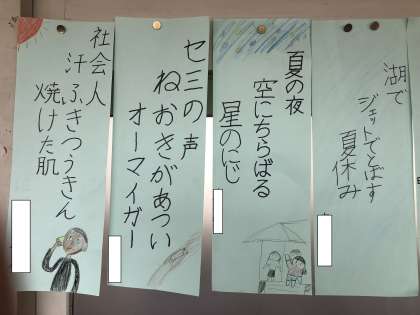 湖で
ジェットでとばす
夏休み
夏の夜
空にちらばる
星のにじ
セミの声
ねおきがあつい
オーマイガー
社会人
汗ふきつうきん
焼けた肌